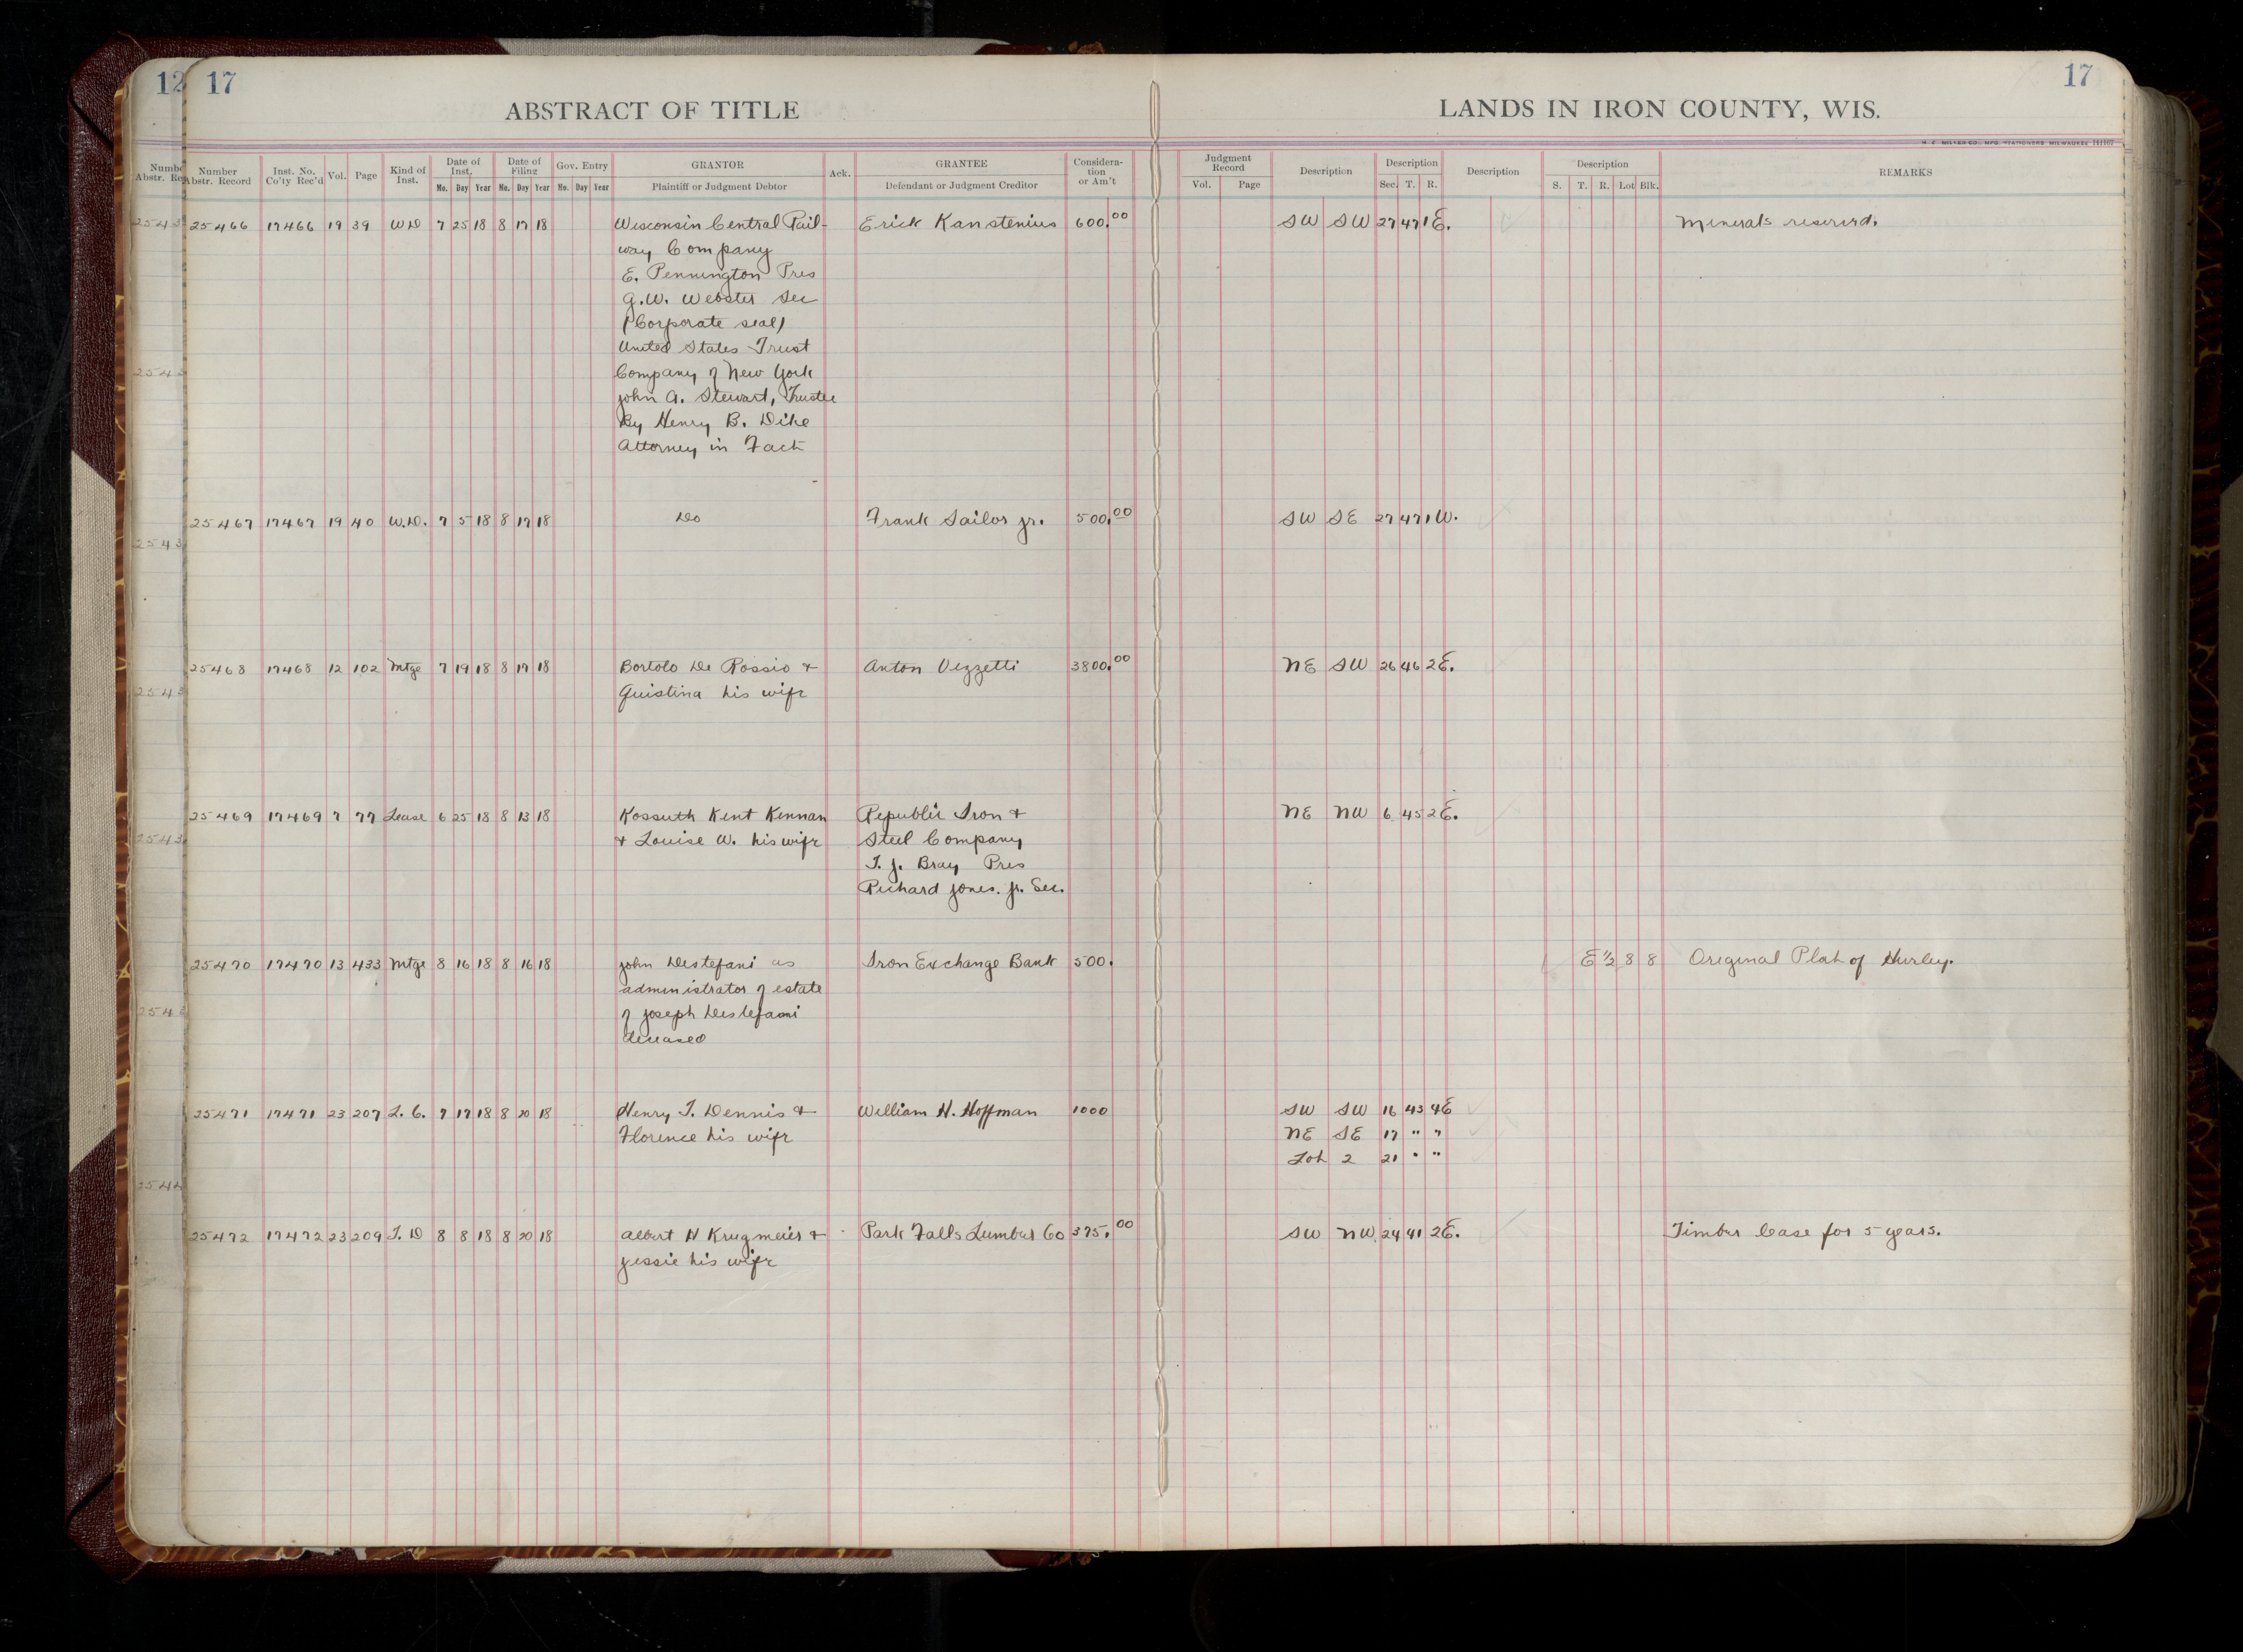 12 17
17
ABSTRACT OF TITLE
LANDS IN IRON COUNTY, WIS.
Number Abstr. Record | Inst. No. Co'ty Rec'd | Vol. | Page | Kind of Inst. | Date of Inst. Mo. Day Year | Date of Filing No. Day Year | Gov. Entry Mo. Day Year | GRANTOR Plaintiff or Judgment Debtor | Ack. | GRANTEE Defendant or Judgment Creditor | Considera-tion or Am't | Judgment Record Vol. Page | Description | Description Sec. T. R. | Description | Description S. T. R. Lot Blk. | REMARKS
25466 17466 19 39 WD 7 25 18 8 17 18 Wisconsin Central Rail- Erick Kanstenius 600.00 SW SW 27 47 1 E. Minerals reserved.
way Company
E. Pennington Pres
G.W. Webster Sec
(Corporate seal)
United States Trust
Company of New York
John A. Stewart, Trustee
By Henry B. Dike
Attorney in Fact
25467 17467 19 40 W.D. 7 5 18 8 17 18 Do Frank Sailor Jr. 500.00 SW SE 27 47 1 W.
25468 17468 12 102 Mtge 7 19 18 8 17 18 Bortolo De Rossio + Anton Vezzetti 3800.00 NE SW 26 46 2 E.
Guistina his wife
25469 17469 7 77 Lease 6 25 18 8 13 18 Kossuth Kent Kennan Republic Iron + NE NW 6 45 2 E.
+ Louise W. his wife Steel Company
T. J. Bray Pres
Richard Jones. Jr. Sec.
25470 17470 13 433 Mtge 8 16 18 8 16 18 John Destefani as Iron Exchange Bank 500. E ½ 8 8 Original Plat of Hurley.
administrator of estate
of Joseph Destefani
deceased
25471 17471 23 207 L. C. 7 17 18 8 20 18 Henry T. Dennis + William H. Hoffman 1000 SW SW 16 43 4 E
Florence his wife NE SE 17 " "
Lot 2 21 " "
25472 17472 23 209 T. D 8 8 18 8 20 18 Albert H Krugmeier + Park Falls Lumber Co 375.00 SW NW 24 41 2 E. Timber lease for 5 years.
Jessie his wife